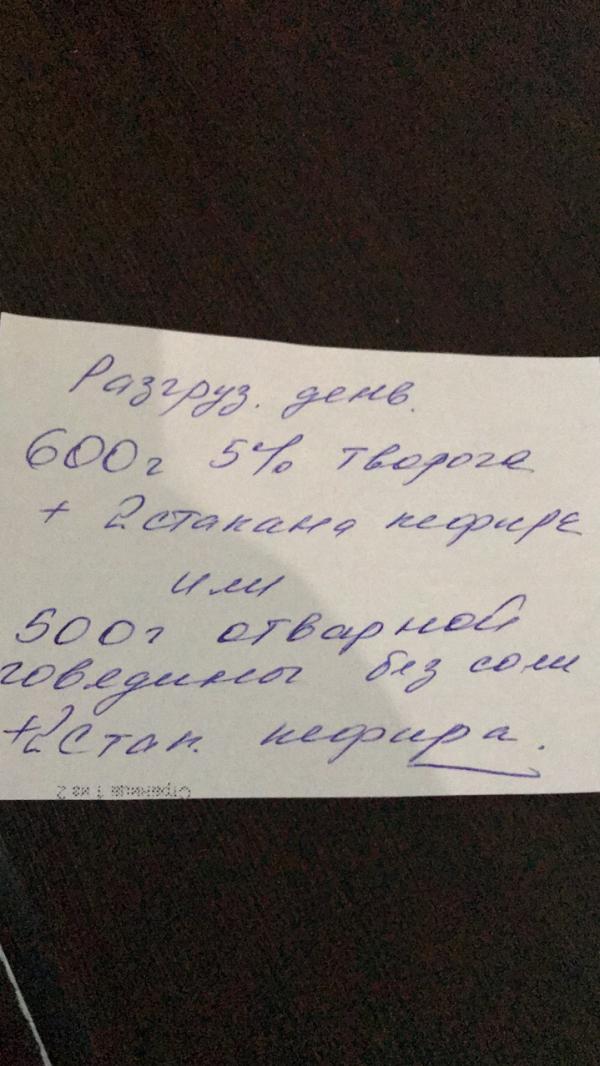 Разгруз. день.
600г 5% творога
+ 2 стакана кефира
или
500г отварной
говядины без соли
+2 стак. кефира.
Страница 1 из 2